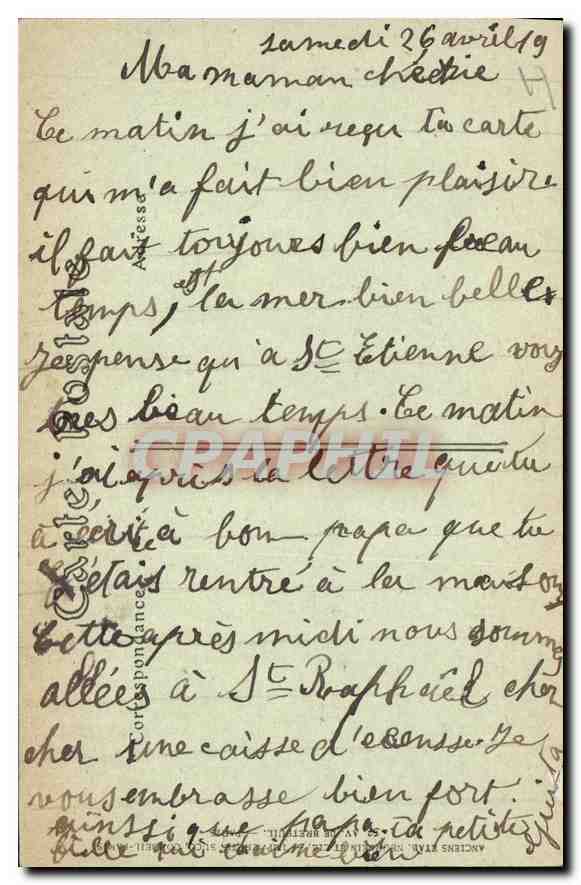 samedi 26 avril 19
Ma maman chérie
Ce matin j'ai reçu ta carte
qui m'a fait bien plaisire
il fait toujours bien beau
temps, est la mer bien belle.
Je pense qu'a St Etienne vous
avez beau temps. Ce matin
j'ai apris la lettre que tu
à écrit à bon papa que tu
étais rentré à la maison
Cette après midi nous sommes
allées à St Raphaël cher
cher une caisse d'essense. Je
vous embrasse bien fort
ainssi que papa ta petite
fille qui t'aime bien
Carte Postale
Adresse
Correspondance
CPAPHIL
52, AV. DE BRETEUIL